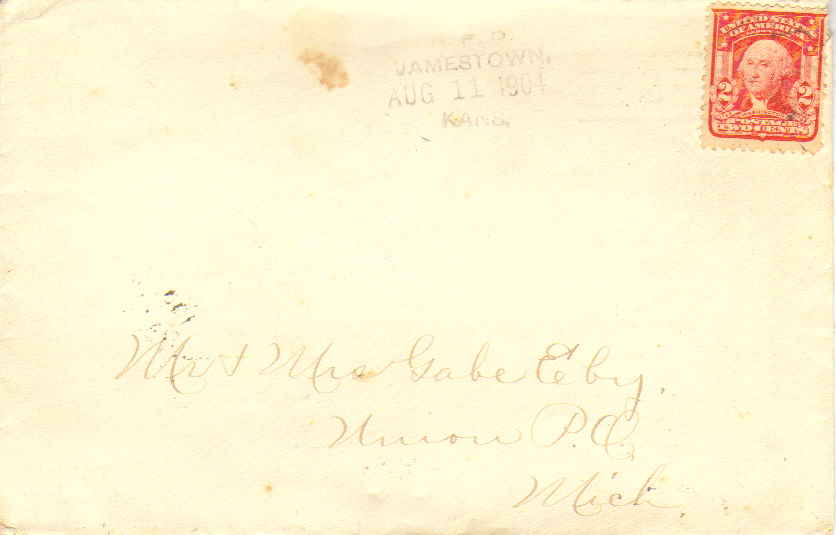 R.F.D.
JAMESTOWN,
AUG 11 1904
KANS.
UNITED STATES
OF AMERICA
2 2
POSTAGE
TWO CENTS
Mr & Mrs Gabe Eby,
Union P.O.
Mich.